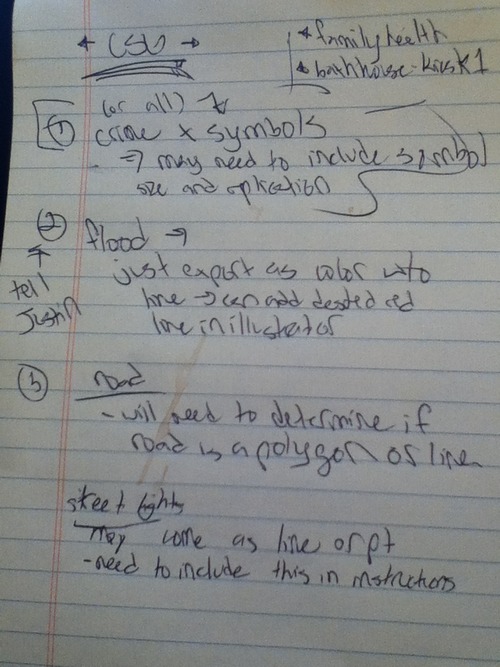 CSU
* familyhealth
* bathhouse-KiosK1
(or all)
① crime x symbols
⇒ may need to include symbol
size and
② flood →
tell
Justin
just export as color w/o
line → can add dashed red
line in illustrator
③ road
- will need to determine if
road is a polygon or line
street lights
may come as line or pt
- need to include this in instructions